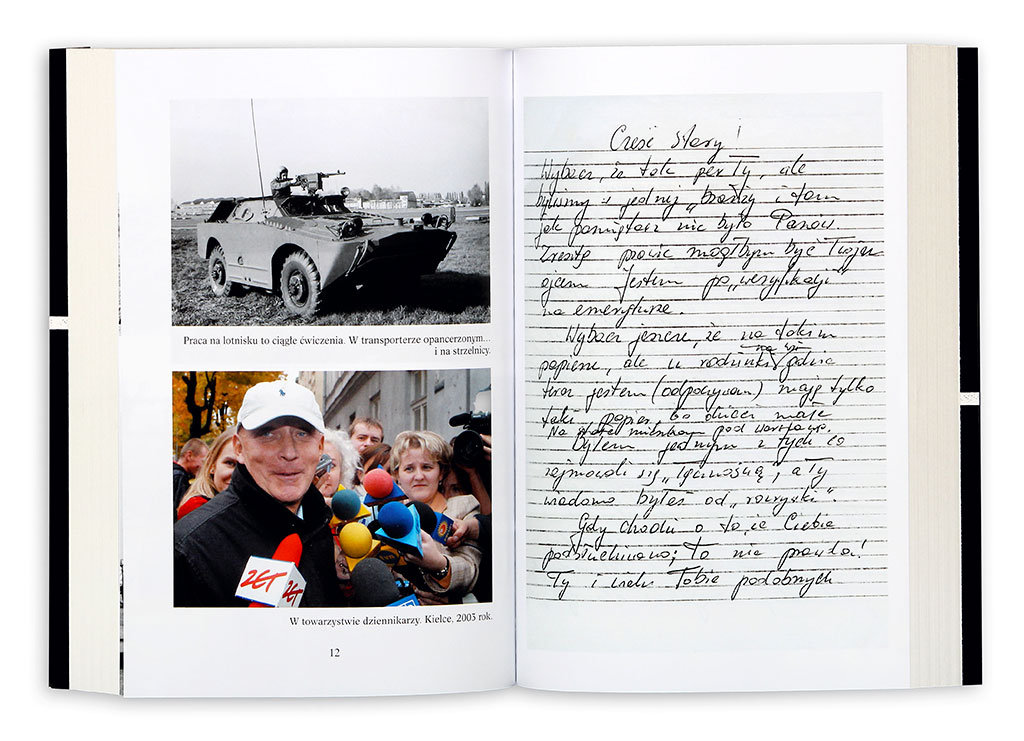 Praca na lotnisku to ciągłe ćwiczenia. W transporterze opancerzonym...
i na strzelnicy.
ZET
ZET
W towarzystwie dziennikarzy. Kielce, 2003 rok.
12
Cześć Stary!
Wybacz, że tak per Ty, ale
byliśmy z jednej „branży" i tam
jak pamiętasz nie było Panów.
Zresztą prawie mógłbym być Twoim
ojcem Jestem po „weryfikacji"
na emeryturze.
Wybacz jeszcze, że na takim
papierze, ale u rodzinki gdzie
na wsi
teraz jestem (odpoczywam) mają tylko
taki papier, bo dzieci małe
Na stałe mieszkam pod Warszawą.
Byłem jednym z tych co
zajmowali się „łącznością", a Ty
wiadomo byłeś od „rozrywki".
Gdy chodzi o to, że Ciebie
podsłuchiwano; to nie prawda!
Ty i wielu Tobie podobnych